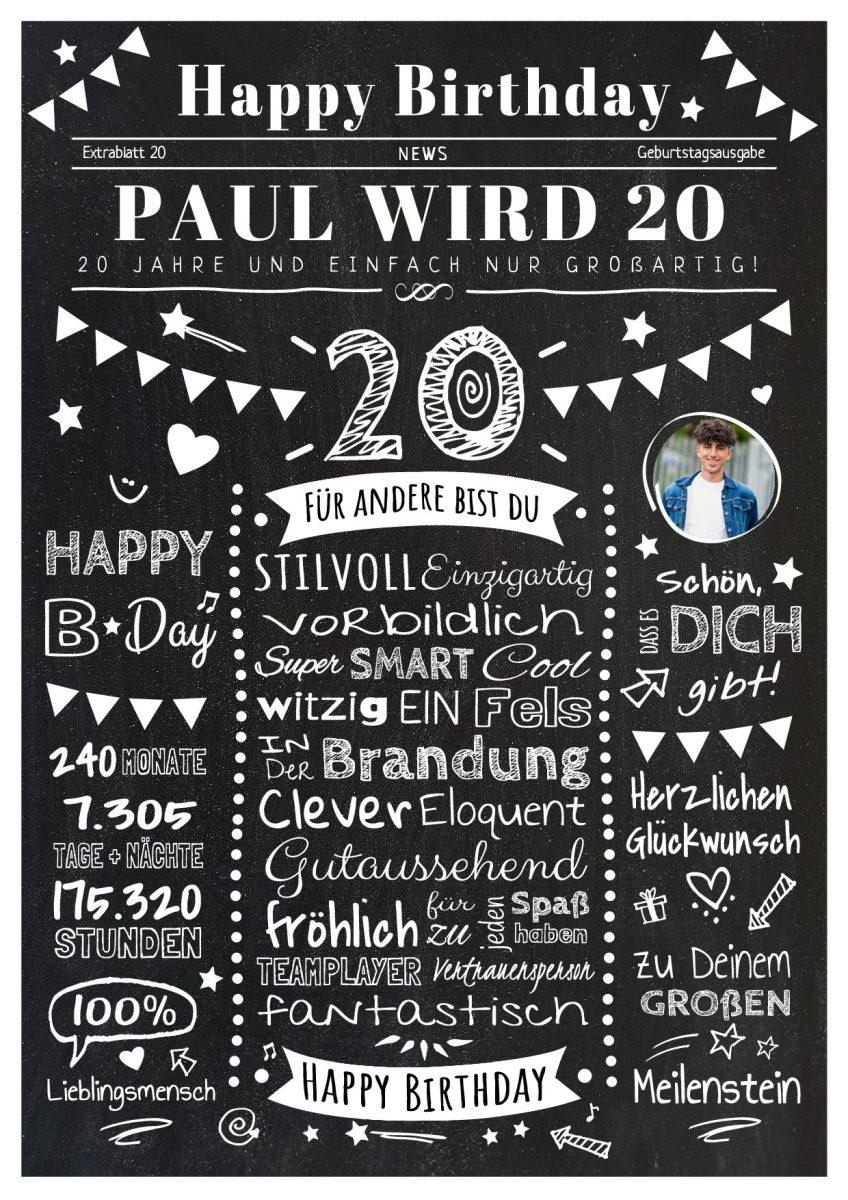 Happy Birthday
Extrablatt 20 NEWS Geburtstagsausgabe
PAUL WIRD 20
20 JAHRE UND EINFACH NUR GROßARTIG!
20
HAPPY
B★Day
240 MONATE
7.305
TAGE + NÄCHTE
175.320
STUNDEN
100%
Lieblingsmensch
FÜR ANDERE BIST DU
STILVOLL Einzigartig
voRbildlich
Super SMART Cool
witzig EIN Fels
IN Der Brandung
Clever Eloquent
Gutaussehend
fröhlich für zu jeden Spaß haben
TEAMPLAYER Vertrauensperson
fantastisch
HAPPY BIRTHDAY
Schön,
DASS ES DICH
gibt!
Herzlichen
Glückwunsch
zu Deinem
GROßEN
Meilenstein